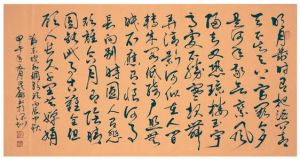 明月幾時有把酒問青
天不知天上宮闕今夕
是何年我欲乘風歸
去又恐瓊樓玉宇
高處不勝寒起舞
弄清影何似在人間
轉朱閣低綺戶照無眠
不應有恨何事
長向別時圓人有悲
歡離合月有陰晴
圓缺此事古難全但願
人長久千里共嬋娟
蘇東坡水調歌頭丙辰中秋
甲午年五月書於深圳